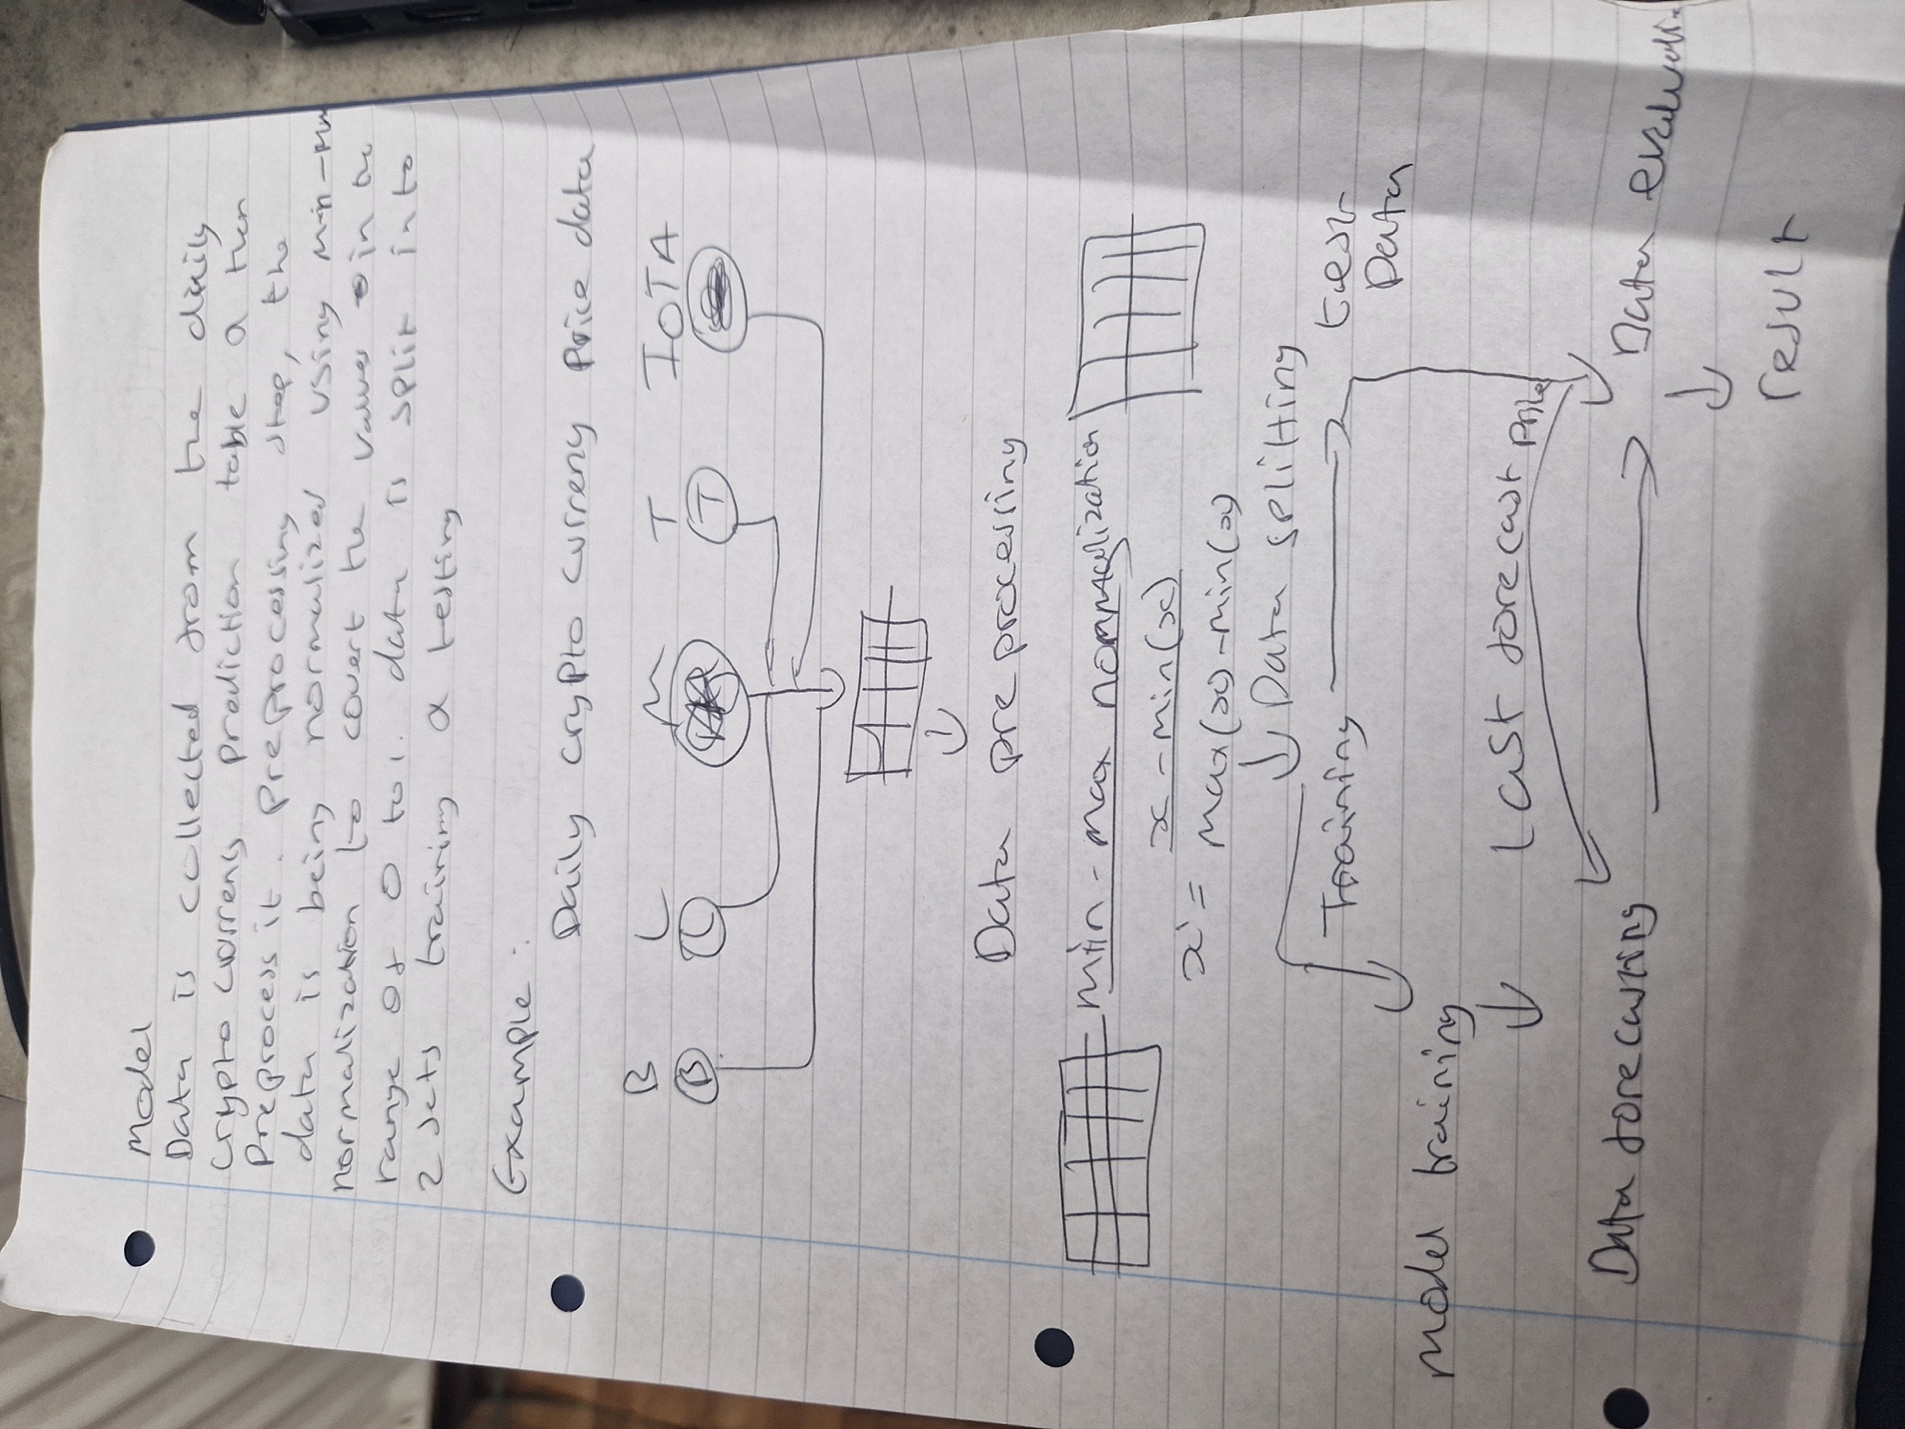 Model
Data is collected from the daily
crypto currency prediction table a then
preprocess it. Preprocessing step, the
data is being normalized using min-
normalization to covert the values in
range of 0 to 1. data is split into
2 sets training a testing
Example:
Daily crypto currency Price data
B L T IOTA
B L T
Data pre processing
min-max normalization
x' = x - min(x)
max(x) - min(x)
Data splitting
Training
test
Data
model training
Last forecast Price
Data forecasting
Data
result